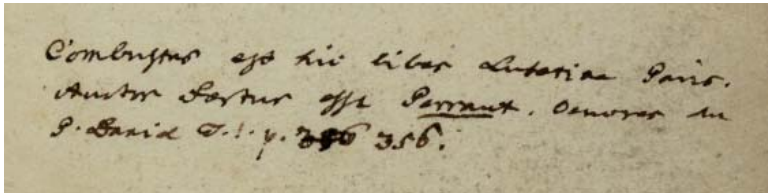 Combustus est hic liber Lutetiae Paris.
Auctor dictus esse Parraut. Oeuvres du
P. Daniel T. I. p. 356.